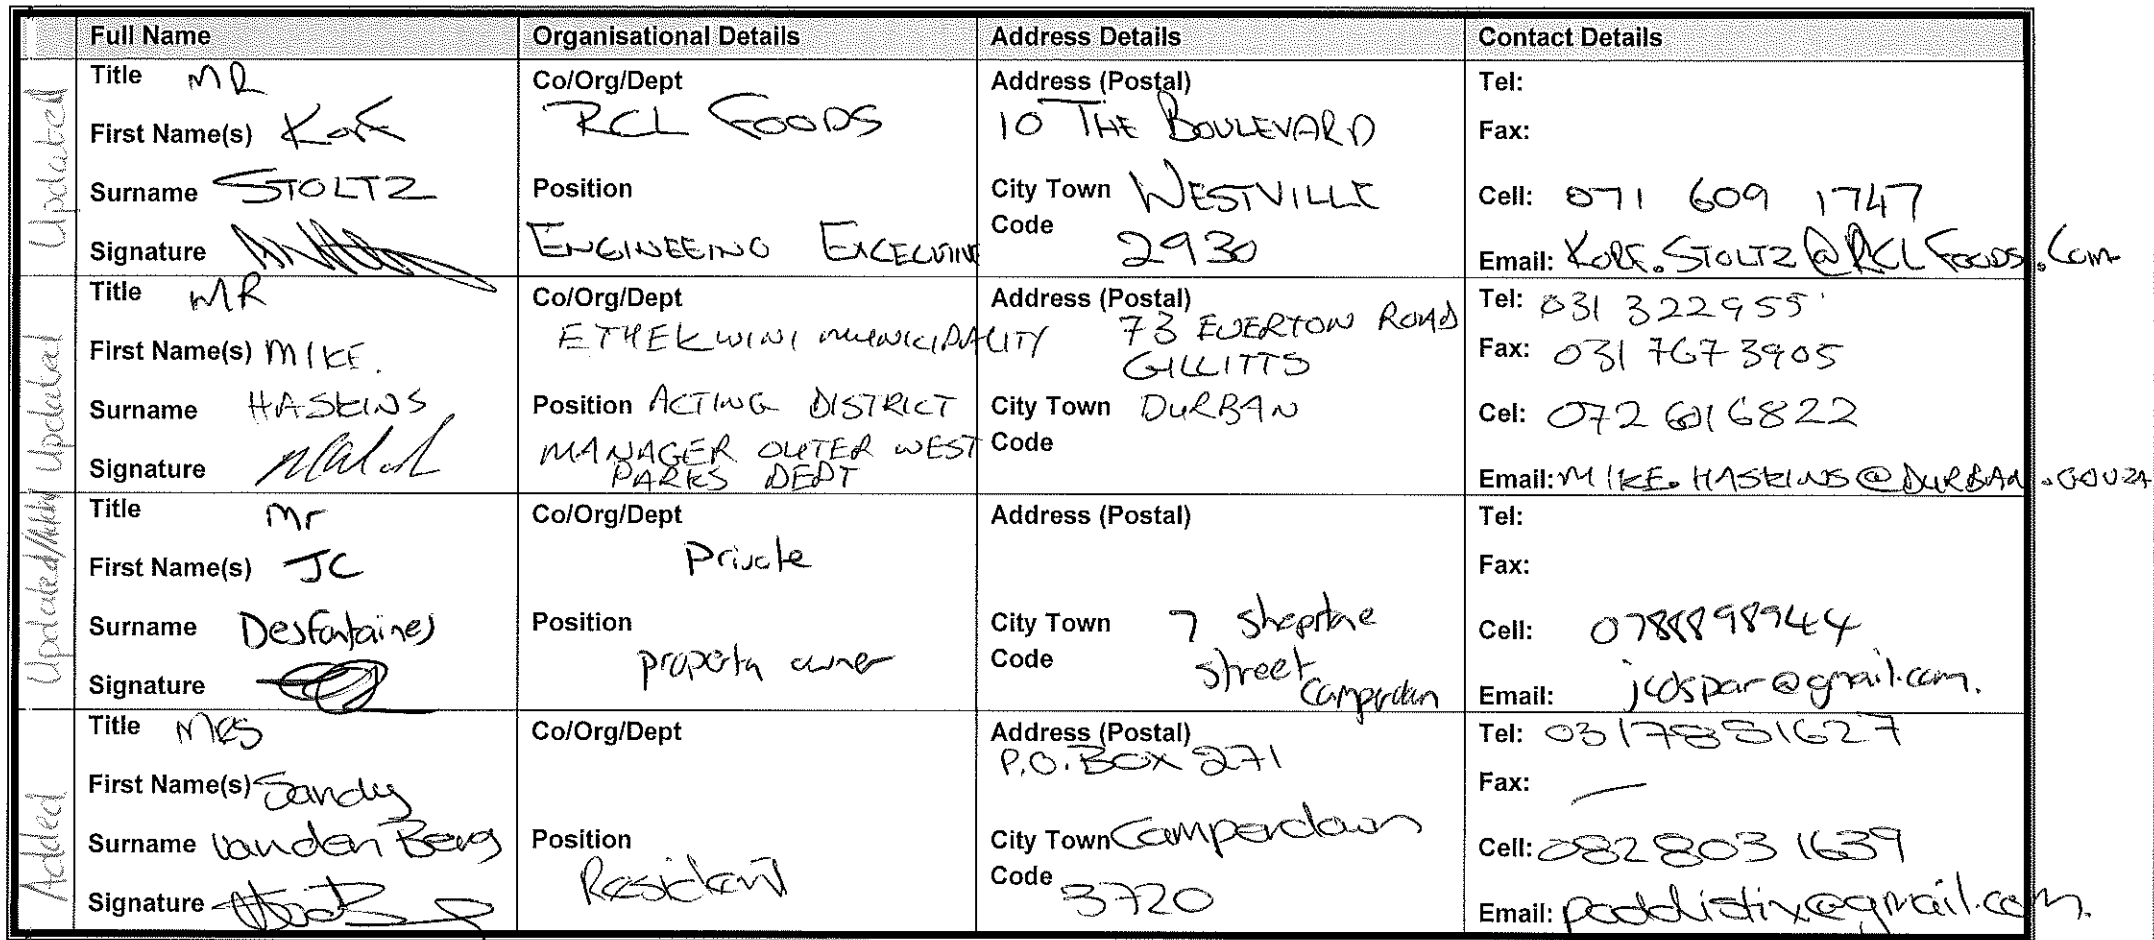 Full Name Organisational Details Address Details Contact Details
Updated
Title MR
First Name(s) Korf
Surname STOLTZ
Signature
Co/Org/Dept
RCL FOODS
Position
ENGINEEING EXCECUTIVE
Address (Postal)
10 THE BOULEVARD
City Town WESTVILLE
Code
2930
Tel:
Fax:
Cell: 071 609 1747
Email: KORF.STOLTZ@RCLFOODS.Com
Updated
Title MR
First Name(s) MIKE.
Surname HASKINS
Signature
Co/Org/Dept
ETHEKWINI MUNICIPALITY
Position ACTING DISTRICT
MANAGER OUTER WEST
PARKS DEPT
Address (Postal)
73 EVERTON ROAD
GILLITTS
City Town DURBAN
Code
Tel: 031 322955
Fax: 031 7673905
Cel: 072 6016822
Email: MIKE.HASKINS@DURBAN.GOVZA
Updated/Added
Title Mr
First Name(s) JC
Surname Desfontaines
Signature
Co/Org/Dept
Private
Position
property owner
Address (Postal)
City Town 7 shepstone
Code street
Camperdown
Tel:
Fax:
Cell: 0788898944
Email: jcdspar@gmail.com.
Added
Title MRS
First Name(s) Sandy
Surname van den Berg
Signature
Co/Org/Dept
Position
Resident
Address (Postal)
P.O. BOX 271
City Town Camperdown
Code 3720
Tel: 0317851627
Fax: —
Cell: 082 803 1639
Email: paddistix@gmail.com.